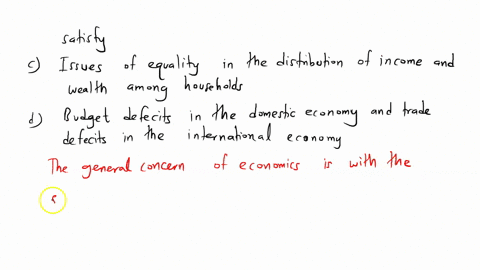 satisfy
c) Issues of equality in the distribution of income and
wealth among households
d) Budget defecits in the domestic economy and trade
defecits in the international economy
The general concern of economics is with the